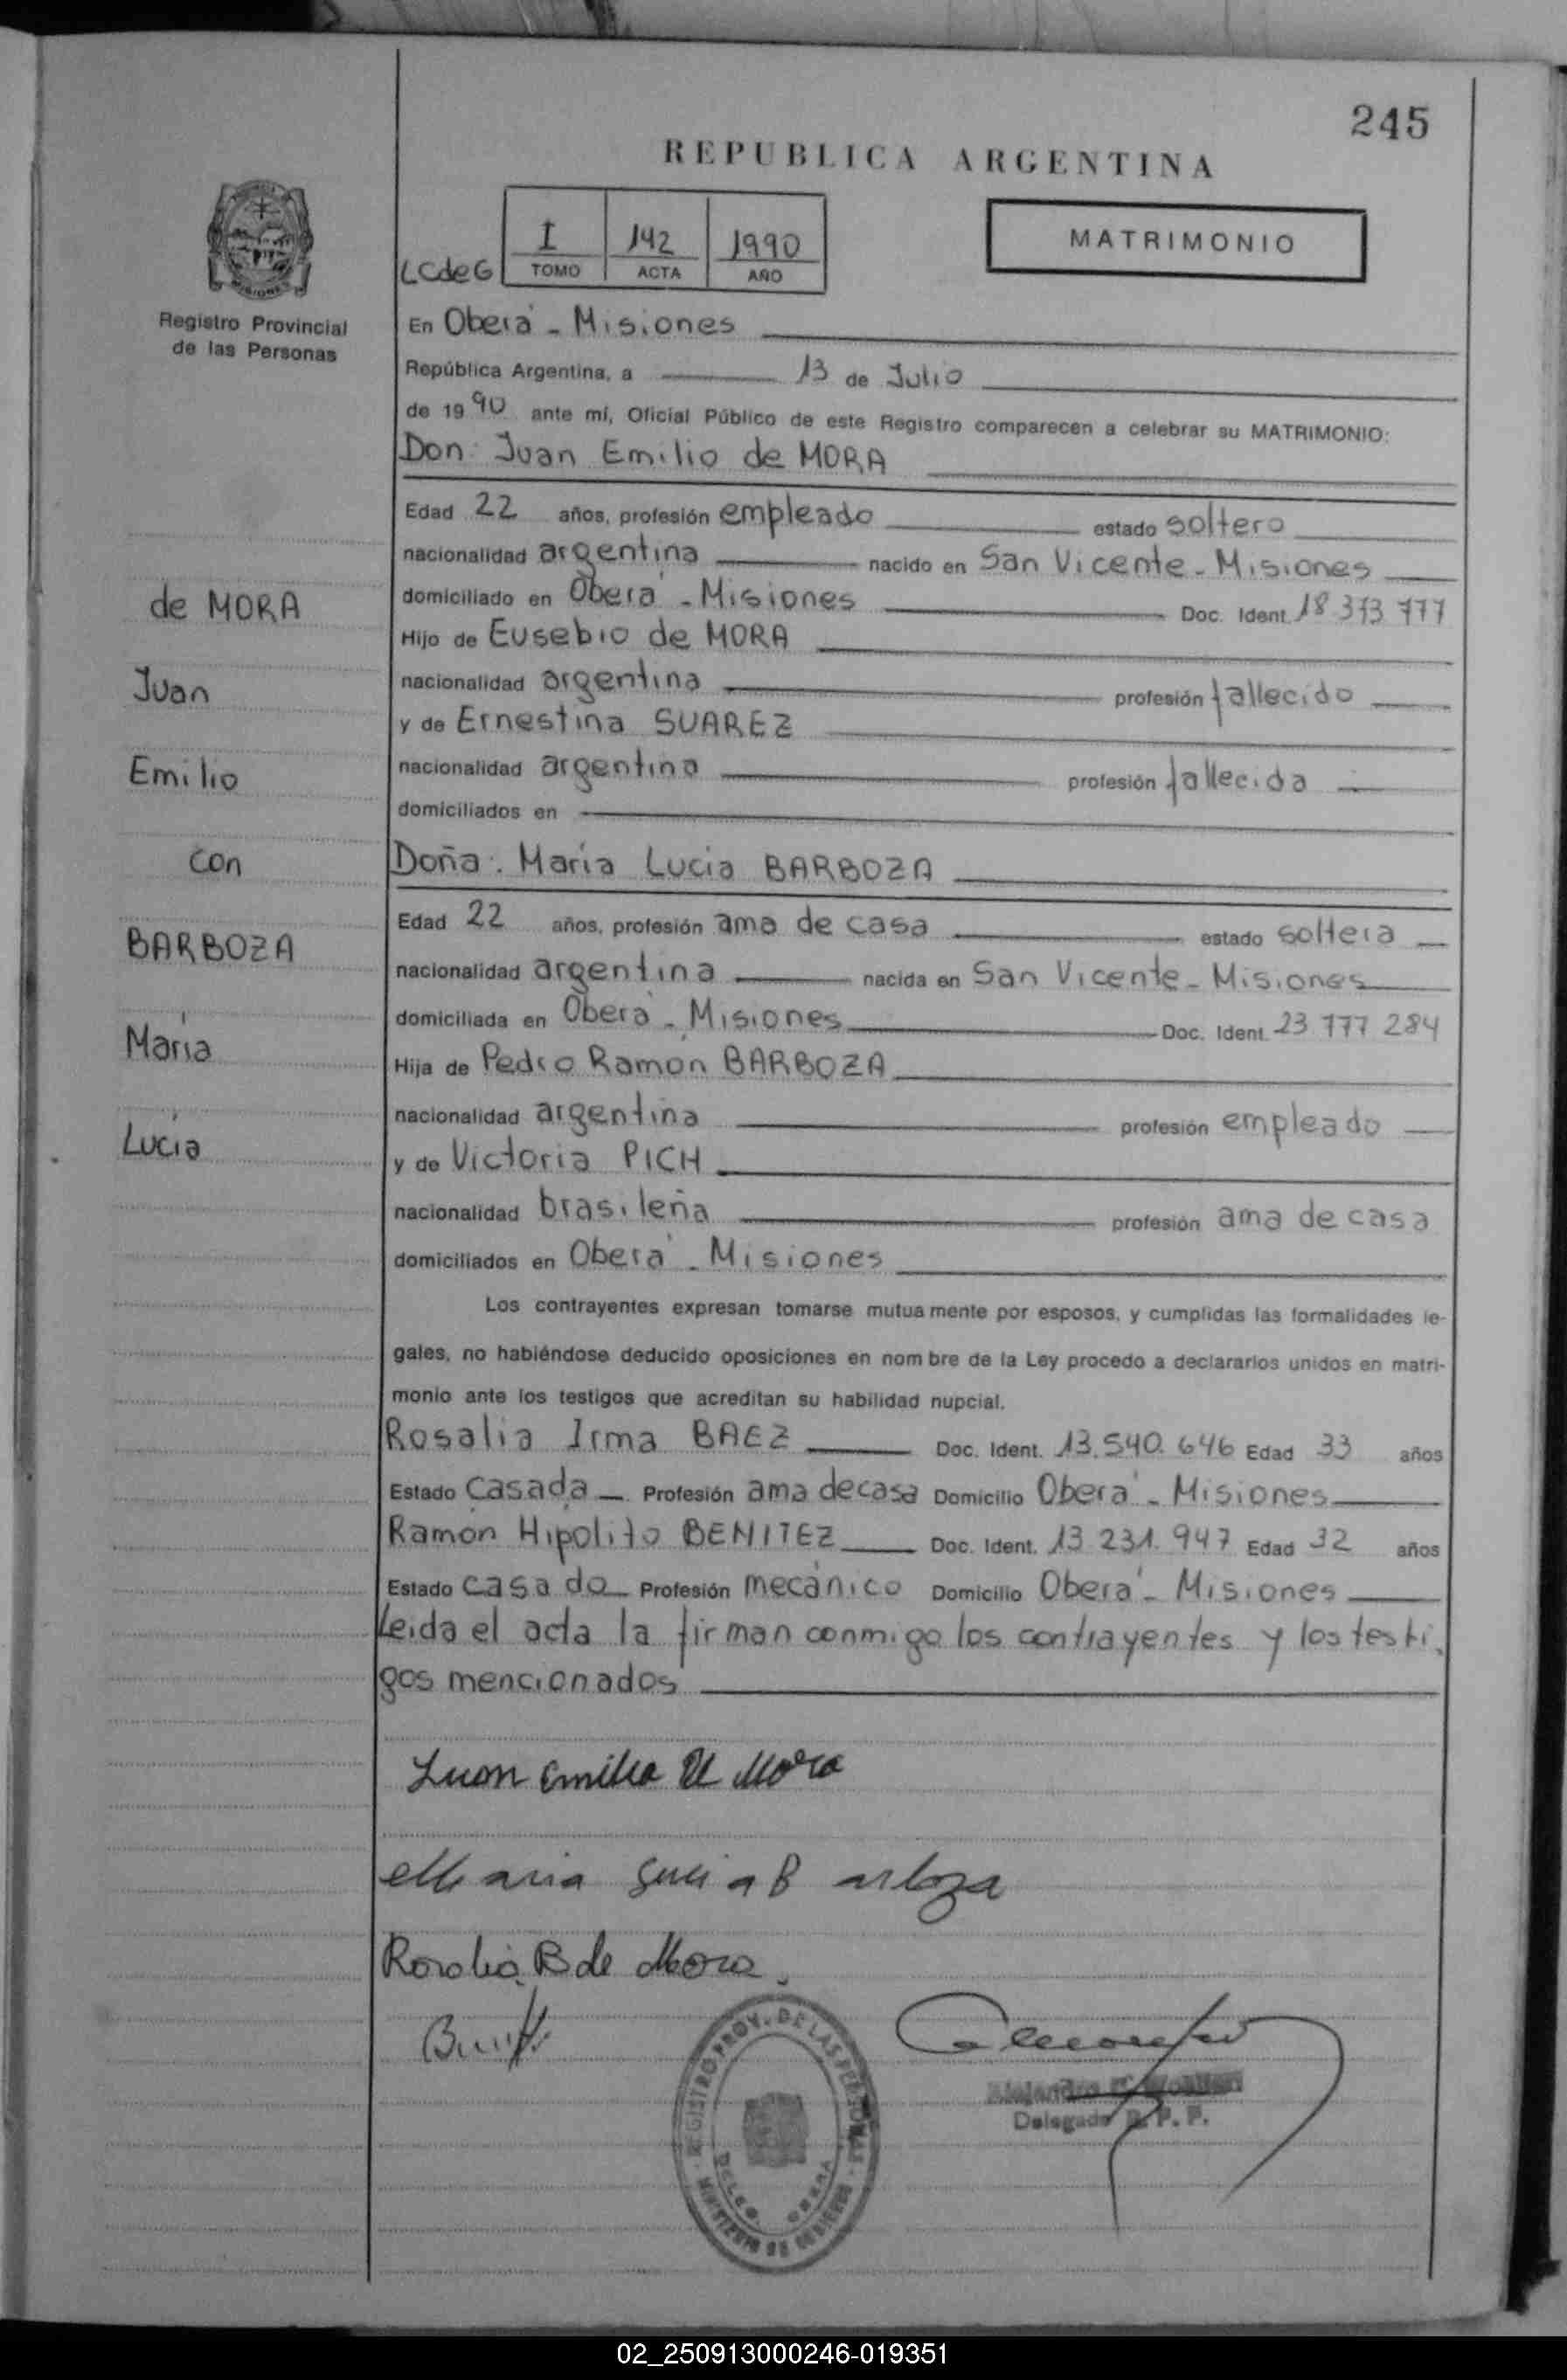 245
REPUBLICA ARGENTINA
I 142 1990
LCdeG TOMO ACTA AÑO
MATRIMONIO
Registro Provincial
de las Personas
En Oberá - Misiones
República Argentina, a 13 de Julio
de 1990 ante mí, Oficial Público de este Registro comparecen a celebrar su MATRIMONIO:
Don: Juan Emilio de MORA
Edad 22 años, profesión empleado estado soltero
nacionalidad argentina nacido en San Vicente - Misiones
domiciliado en Oberá - Misiones Doc. Ident. 18 373 777
Hijo de Eusebio de MORA
nacionalidad argentina profesión fallecido
y de Ernestina SUAREZ
nacionalidad argentina profesión fallecida
domiciliados en
Doña: María Lucia BARBOZA
Edad 22 años, profesión ama de casa estado soltera
nacionalidad argentina nacida en San Vicente - Misiones
domiciliada en Oberá - Misiones Doc. Ident. 23 777 284
Hija de Pedro Ramón BARBOZA
nacionalidad argentina profesión empleado
y de Victoria PICH
nacionalidad brasileña profesión ama de casa
domiciliados en Oberá - Misiones
Los contrayentes expresan tomarse mutuamente por esposos, y cumplidas las formalidades le-
gales, no habiéndose deducido oposiciones en nombre de la Ley procedo a declararlos unidos en matri-
monio ante los testigos que acreditan su habilidad nupcial.
Rosalia Irma BAEZ Doc. Ident. 13.540.646 Edad 33 años
Estado casada Profesión ama de casa Domicilio Oberá - Misiones
Ramón Hipólito BENITEZ Doc. Ident. 13 231.947 Edad 32 años
Estado casado Profesión mecánico Domicilio Oberá - Misiones
Leida el acta la firman conmigo los contrayentes y los testi-
gos mencionados
de MORA
Juan
Emilio
con
BARBOZA
María
Lucía
Juan Emilio de Mora
Maria Lucia Barboza
Rosalia B de Mora
REGISTRO PROV. DE LAS PERSONAS
DELEG. OBERA
MINISTERIO DE GOBIERNO
Alejandro
Delegado R. P. P.
02_250913000246-019351